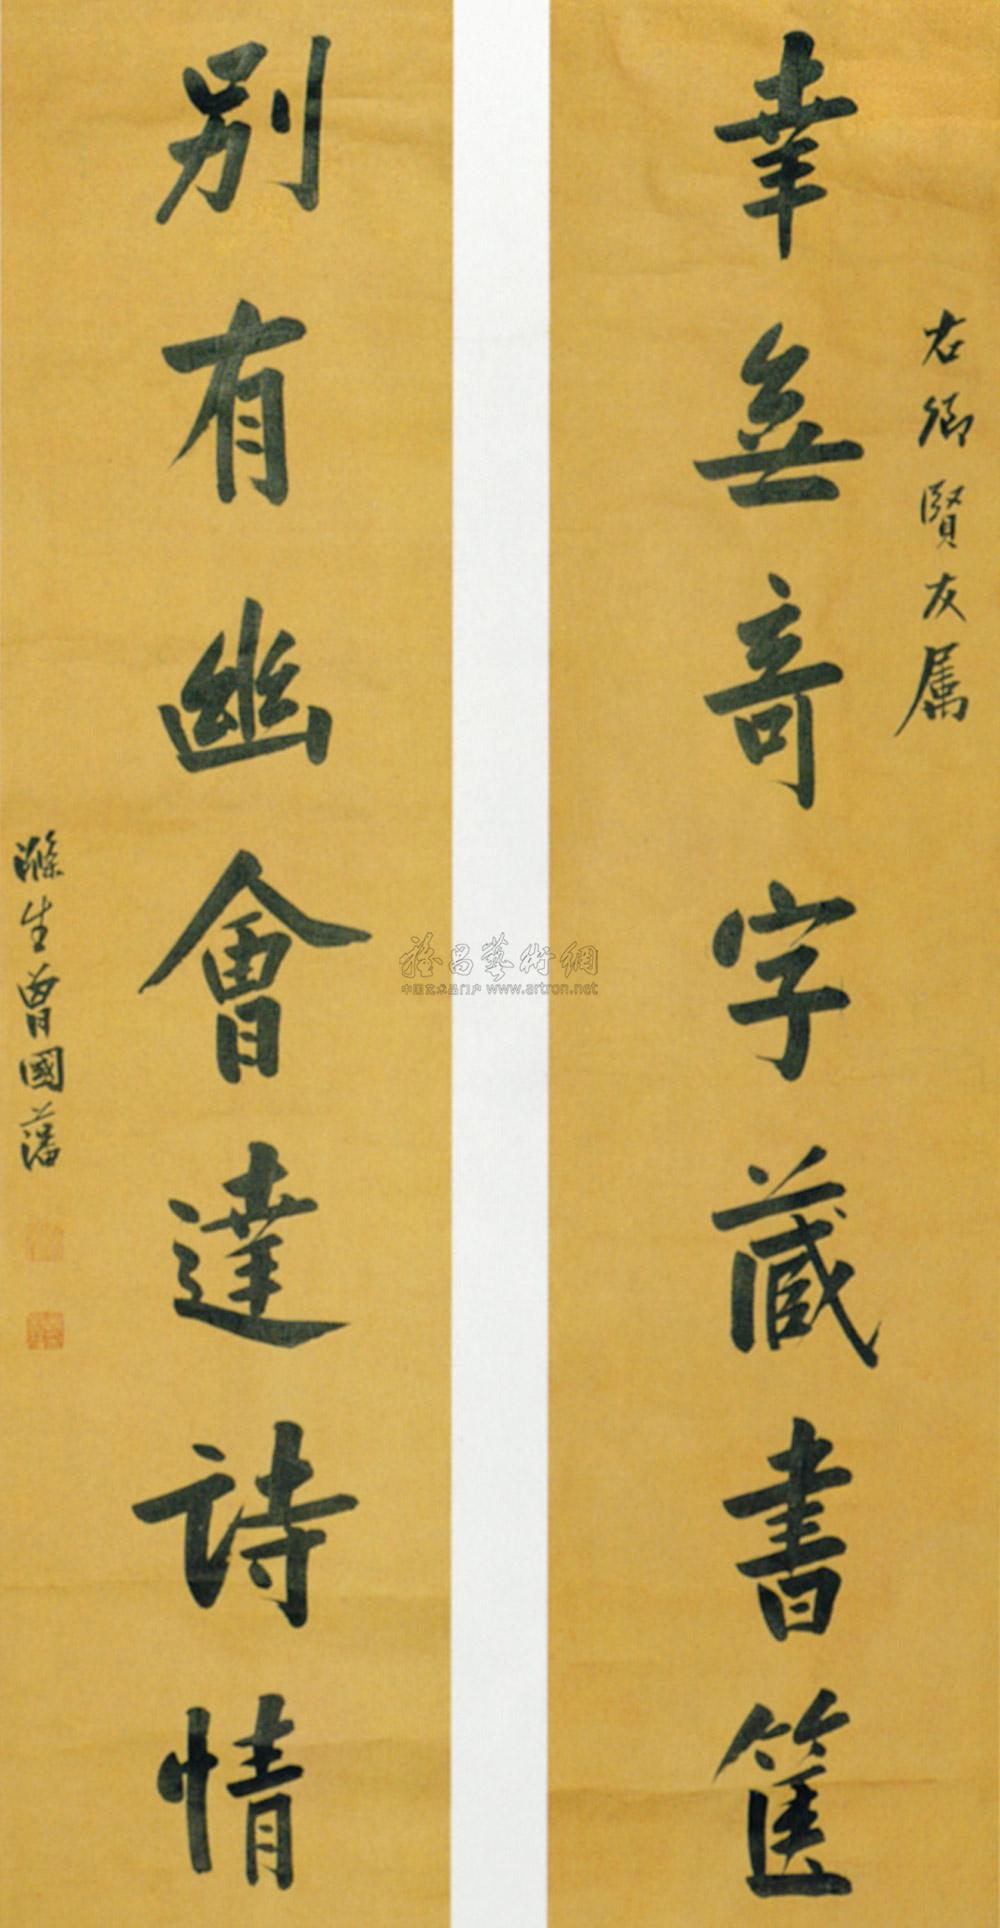 幸無奇字藏書篋
右卿賢友属
別有幽會達詩情
滌生曾國藩
雅昌藝術網
中国艺术品门户 www.artron.net